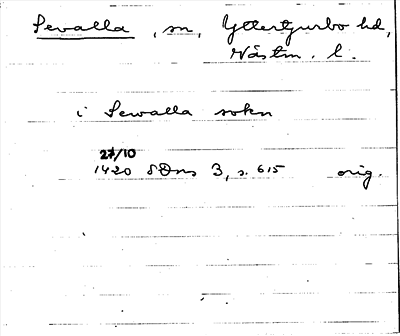 Sevalla, sn, Yttertjurbo hd,
Västm. l.
i Sewalla sokn
27/10
1420 SDns 3, s. 615 orig.